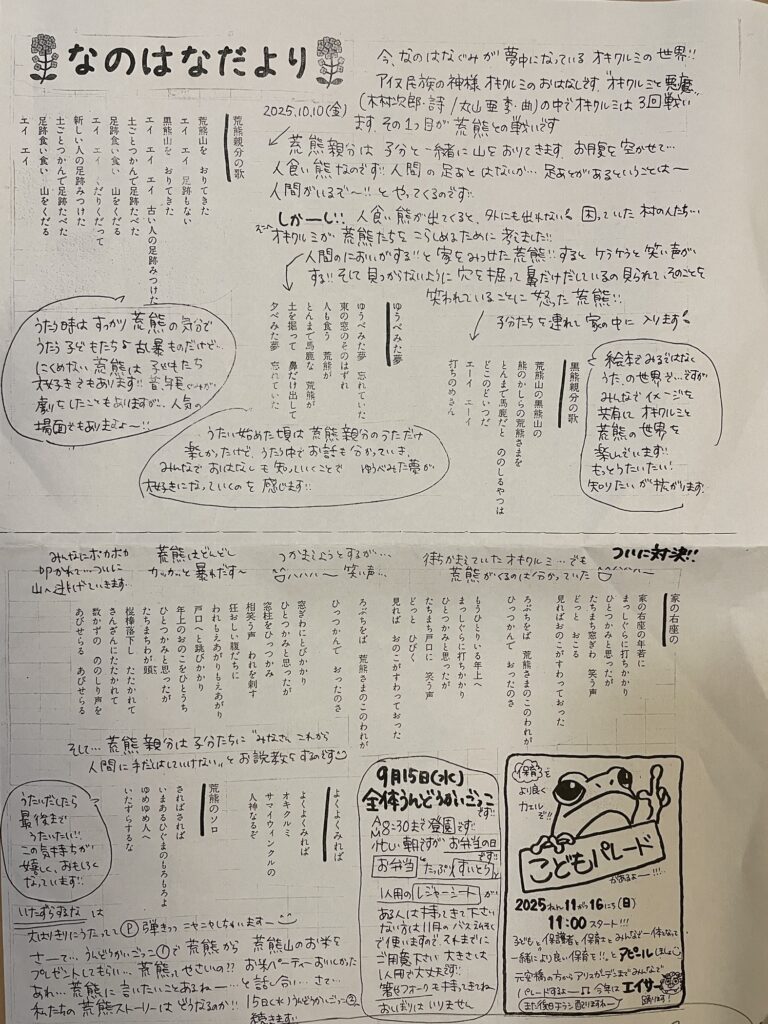 なのはなだより
2025.10.10(金)
今、なのはなぐみが夢中になっている オキクルミの世界!!
アイヌ民族の神様 オキクルミのおはなしです。"オキクルミと悪魔"
(木村次郎・詩/丸山亜季・曲)の中でオキクルミは3回戦い
ます。その1つ目が荒熊との戦いです
荒熊親分は子分と一緒に山をおりてきます。お腹を空かせて…
人食い熊なのです!! 人間の足あとはないが… 足あとがあるということはー
人間がいるぞ〜!! とやってくるのです!!
しかーし!! 人食い熊が出てくると、外にも出れない 困っていた村の人たち…
オキクルミが荒熊たちをこらしめるために考えました!!
人間のにおいがする!! と家をみつけた荒熊!! すると ケラケラと笑い声が
する!! そして見つからないように穴を掘って鼻だけだしているの見られて、そのことを
笑われていることに怒った荒熊!!
子分たちを連れて家の中に入ります
荒熊親分の歌
荒熊山を おりてきた
エイ エイ 足跡もない
黒熊山を おりてきた
エイ エイ エイ 古い人の足跡みつけた
土ごとつかんで足跡たべた
足跡食い食い 山をくだる
エイ エイ くだりくだって
新しい人の足跡みつけた
土ごとつかんで足跡たべた
足跡食い食い 山をくだる
エイ エイ
ゆうべみた夢
ゆうべみた夢 忘れていた
東の窓のそのはずれ
人も食う 荒熊が
とんまで馬鹿な 荒熊が
土を掘って 鼻だけ出して
夕べみた夢 忘れていた
黒熊親分の歌
荒熊山の黒熊山の
熊のかしらの荒熊さまを
とんまで馬鹿だと ののしるやつは
どこのどいつだ
エーイ エーイ
打ちのめさん
うたう時はすっかり荒熊の気分で
うたう子どもたち♪ 乱暴ものだけど…
にくめない荒熊は子どもたち
大好きでもあります!!
劇をしたこともありますが、人気の
場面でもありますよ〜!!
うたい始めた頃は荒熊親分のうただけ
楽しかったけど、うたう中でお話も分かっていき、
みんなでおはなしも知っていくことで ゆうべみた夢が
大好きになっていくのを感じます!!
絵本でみるではなく
うたの世界で…ですが
みんなでイメージを
共有してオキクルミと
荒熊の世界を
楽しんでいます!!
もっとうたいたい!
知りたいが拡がります
ついに対決!!
待ちかまえていたオキクルミ…でも
荒熊がくるのは分かっていた
つかまえようとするが…
ハハハー 笑い声…
荒熊はどんどん
カッカッと暴れだす〜
みんなにボカボカ
叩かれて…ついに
山へ逃げていきます…
家の右座の
家の右座の年若に
まっしぐらに打ちかかり
ひとつかみと思ったが
たちまち窓ぎわ 笑う声
どっと おこる
見ればおのこがすわっておった
ろぶちをば 荒熊さまのこのわれが
ひっつかんで おったのさ
もうひとりいる年上へ
まっしぐらに打ちかかり
ひとつかみと思ったが
たちまち戸口に 笑う声
どっと ひびく
見れば おのこがすわっておった
ろぶちをば 荒熊さまのこのわれが
ひっつかんで おったのさ
窓ぎわにとびかかり
ひとつかみと思ったが
窓柱をひっつかみ
相笑う声 われを刺す
狂おしい腹だちに
われもえあがりもえあがり
戸口へと跳びかかり
年上のおのこをひとうち
ひとつかみと思ったが
たちまちわが頭
棍棒落下し たたかれて
さんざんにたたかれて
数かずの ののしり声を
あびせらる あびせらる
そして… 荒熊親分は子分たちに"みなさん、これから
人間に手だしはしていけない"とお説教をするのです
よくよくみれば
よくよくみれば
オキクルミ
サマイウィンクルの
人神なるぞ
荒熊のソロ
さればされば
いまあるひぐまのもろもろよ
ゆめゆめ人へ
いたずらするな
うたいだしたら
最後まで
うたいたい!!
この気持ちが
嬉しく、おもしろく
なっています!!
いたずらするな は
大はりきりにうたって Ⓟ弾きつつニヤニヤしちゃいます〜
さーて… うんどうかいごっこ①で荒熊から 荒熊山のお米を
プレゼントしてもらい… 荒熊ってやさしいの?? お米パーティーおいしかった
あれ… 荒熊に言いたいことあるねー… と話し合い… さて
私たちの荒熊ストーリーはどうなるのか!! 15日(水)うんどうかいごっこ②
続きます!!
9月15日(水)
全体うんどうかいごっこ
です!!
AM8:30まで登園です!!
忙しい朝ですが お弁当の日
です!!
お弁当 たっぷり すいとう
1人用の レジャーシート が
ある人は持ってきて下さい
ない方は11月のバスえんそく
で使いますので、それまでに
ご用意下さい 大きさは
1人用で大丈夫です!!
箸やフォークも持ってきてね
おしぼりはいりません
保育を
より良く
カエル
ぞ!!
こどもパレード
があるよー!!
2025ねん11がつ16にち(日)
11:00スタート!!!
子どもと保護者と保育士とみんなで一体となって
一緒により良い保育を!!とアピールしましょう
元安橋の方からアリスガーデンまでみんなで
パレードするよー♫ 今年はエイサー
踊ります!
また後日チラシ配りますねー